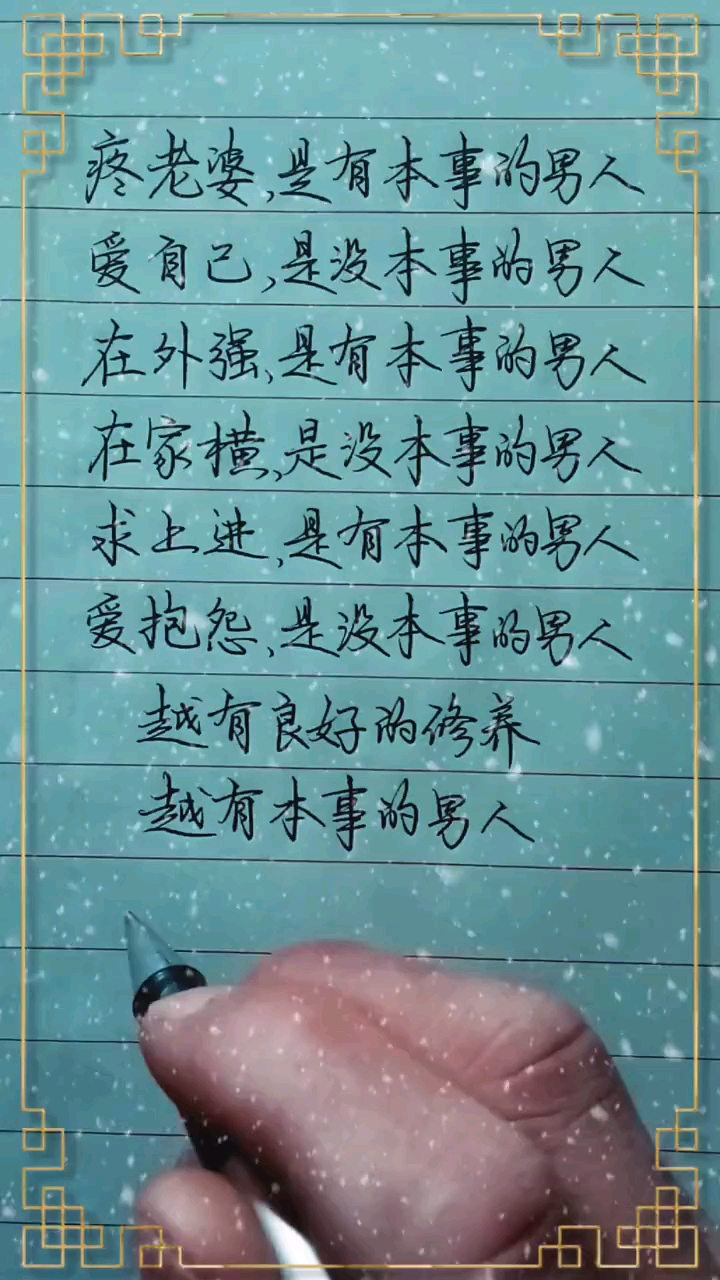 疼老婆,是有本事的男人
爱自己,是没本事的男人
在外强,是有本事的男人
在家横,是没本事的男人
求上进,是有本事的男人
爱抱怨,是没本事的男人
越有良好的修养
越有本事的男人